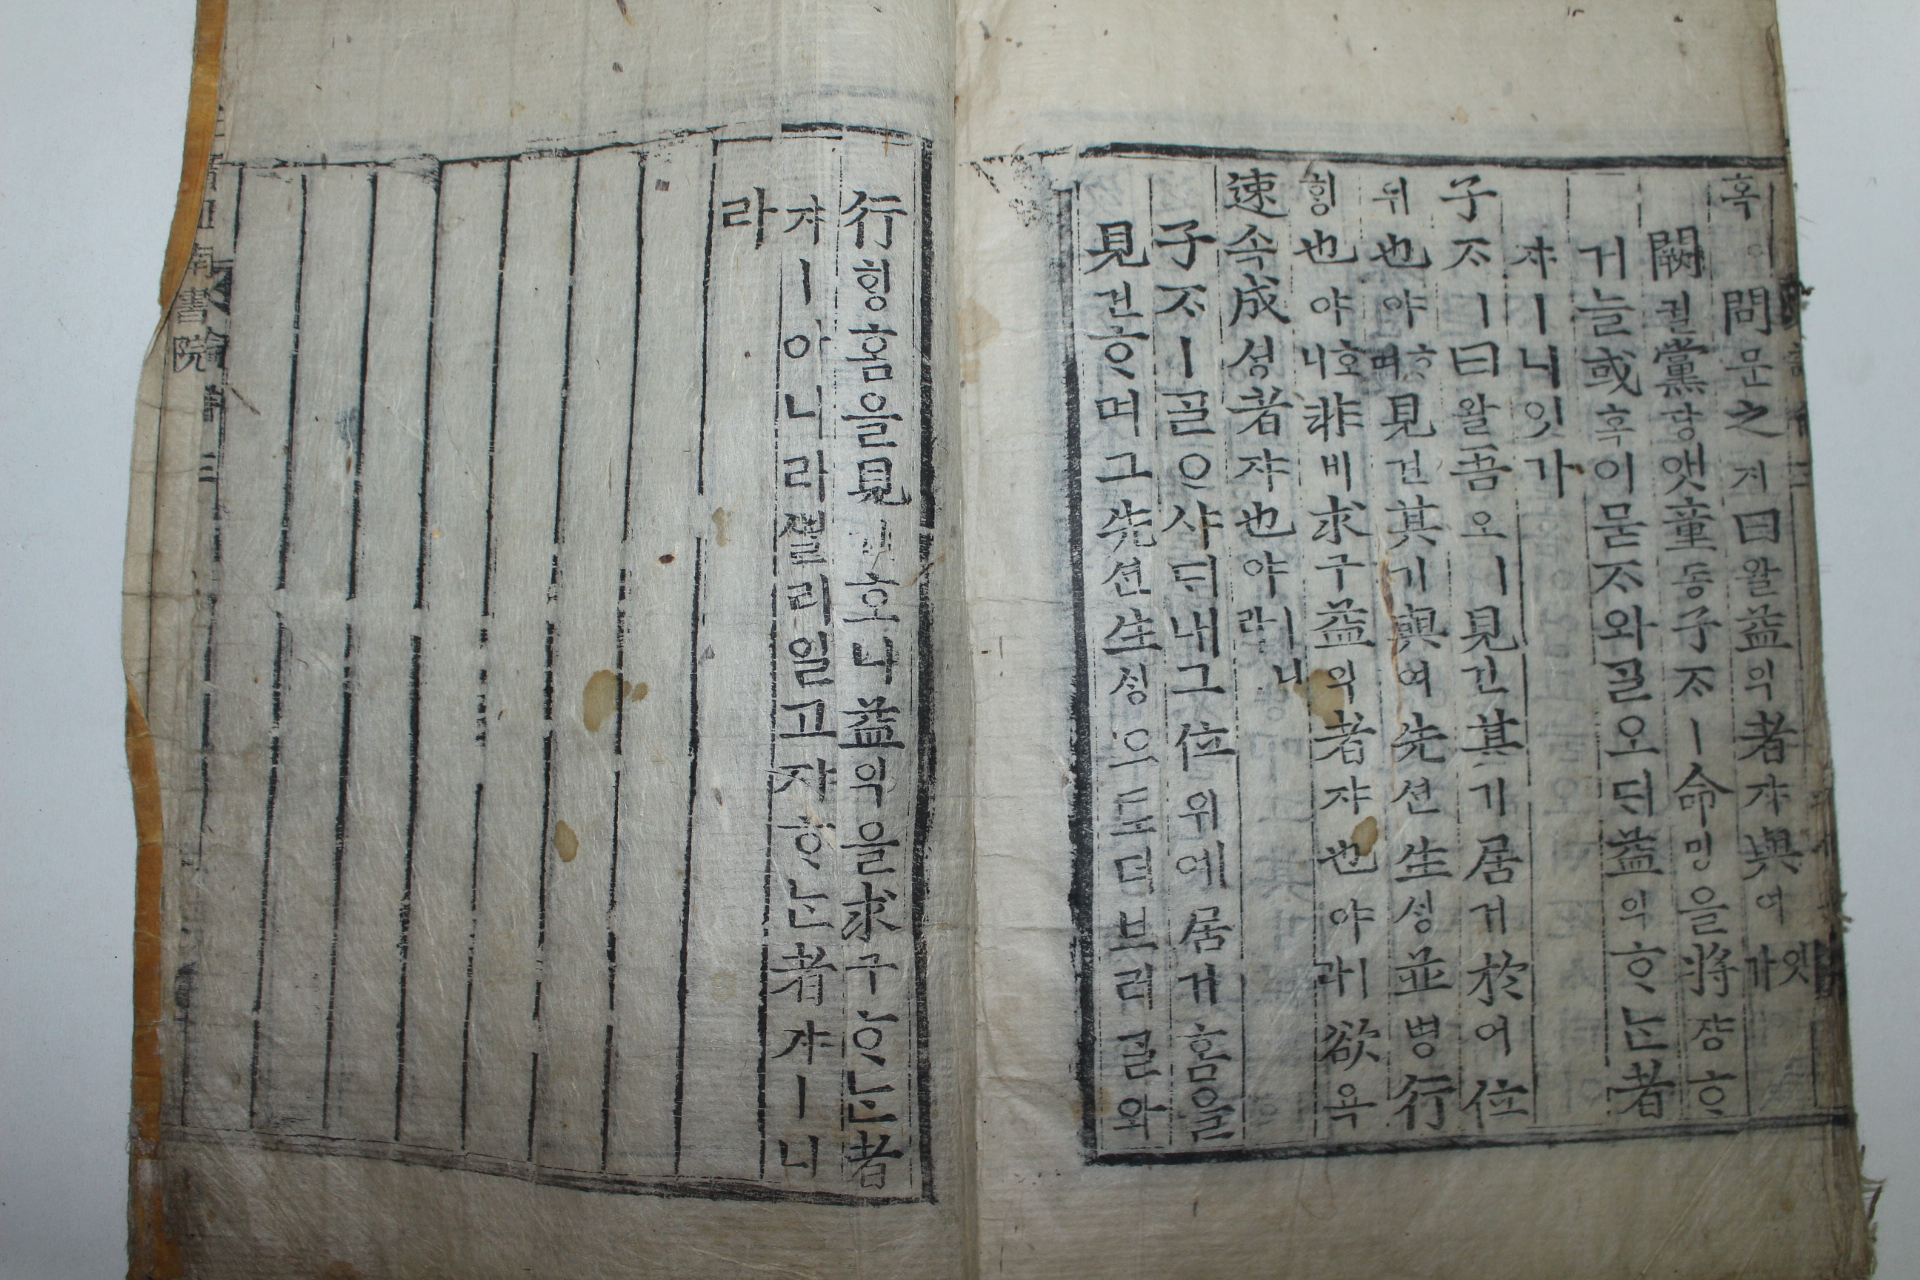 혹이問문之지曰왈益익者쟈與여잇가
闕궐黨당앳童동子ᄌㅣ命명을將쟝ᄒ
거늘或혹이묻ᄌ와ᄀᆯ오ᄃᆡ益익ᄒᄂᆞᆫ者
쟈ㅣ니잇가
子ᄌㅣ曰왈吾오ㅣ見견其기居거於어位
위也야ᄒ며見견其기與여先션生ᄉᆡᆼ並병行
ᄒᆡᆼ也야호니非비求구益익者쟈也야ㅣ라欲욕
速속成셩者쟈也야ㅣ니라
子ᄌㅣᄀᆞᆯᄋᆞ샤ᄃᆡ내그位위예居거홈을
見견ᄒᆞ며그先션生ᄉᆡᆼ으로더브러ᄀᆞᆯ와
行ᄒᆡᆼ홈을見견호니益익을求구ᄒᆞᄂᆞᆫ者
쟈ㅣ아니라ᄲᆞᆯ리일고쟈ᄒᆞᄂᆞᆫ者쟈ㅣ니
라
南書院